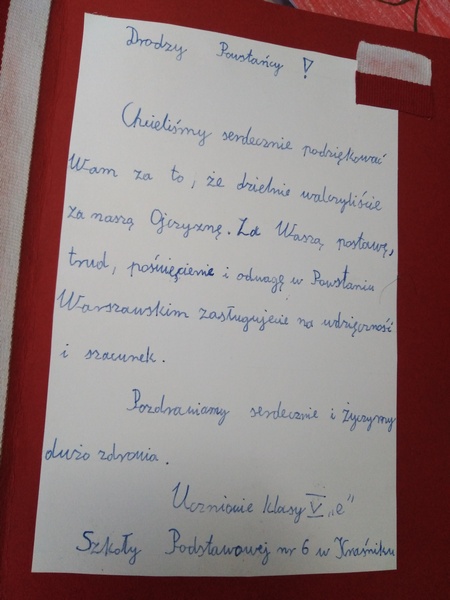 Drodzy Powstańcy!
Chcieliśmy serdecznie podziękować
Wam za to, że dzielnie walczyliście
za naszą Ojczyznę. Za Waszą postawę,
trud, poświęcenie i odwagę w Powstaniu
Warszawskim zasługujecie na wdzięczność
i szacunek.
Pozdrawiamy serdecznie i życzymy
dużo zdrowia.
Uczniowie klasy V „e”
Szkoły Podstawowej nr 6 w Kraśniku